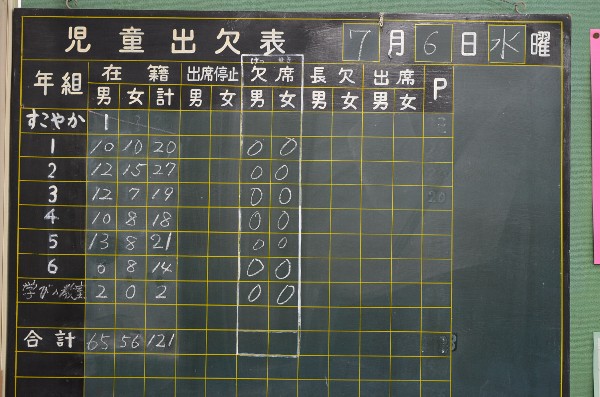 児童出欠表 7月6日水曜
げっ せき
年組 在籍 出席停止 欠席 長欠 出席 P
男 女 計 男 女 男 女 男 女 男 女
すこやか 1
1 10 10 20 0 0
2 12 15 27 0 0
3 12 7 19 0 0
4 10 8 18 0 0
5 13 8 21 0 0
6 6 8 14 0 0
学びの教室 2 0 2 0 0
合計 65 56 121